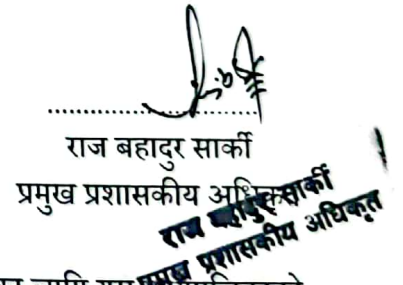 राज बहादुर सार्की
प्रमुख प्रशासकीय अधिकृत
राज बहादुर सार्की
प्रमुख प्रशासकीय अधिकृत